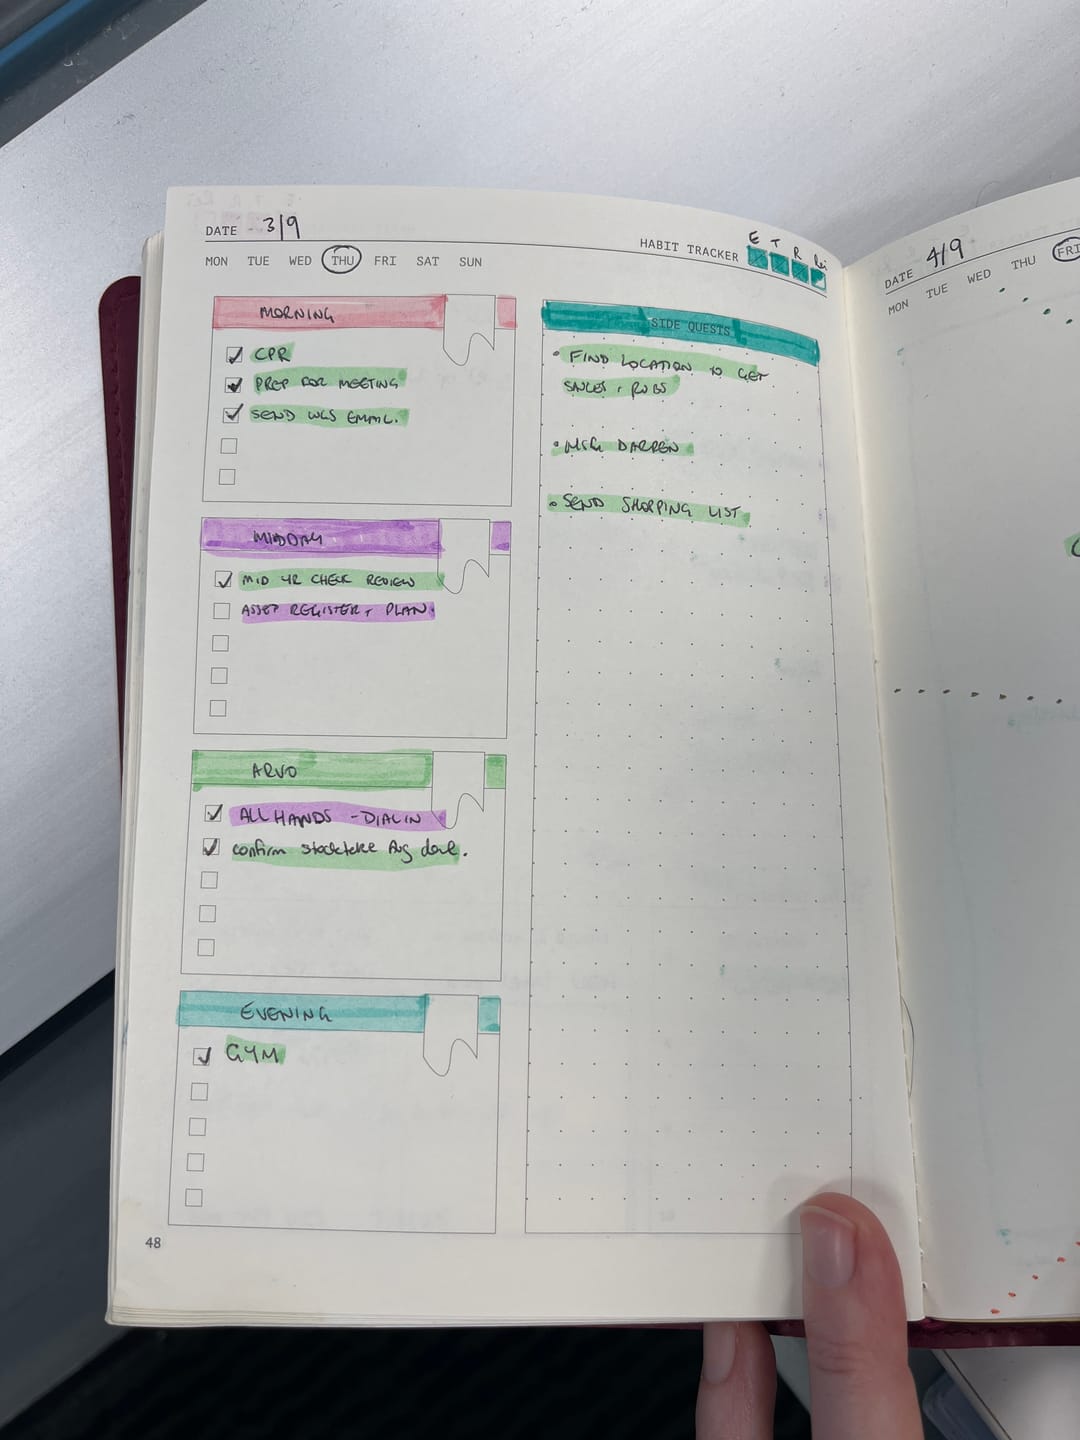 DATE 3/9
MON TUE WED THU FRI SAT SUN
HABIT TRACKER
E T R Rei
MORNING
CPR
PREP FOR MEETING
SEND WGS EMAIL.
MIDDAY
MID YR CHECK REVIEW
ASSET REGISTER + PLAN.
ARVO
ALL HANDS - DIAL IN
confirm stocktake Aug done.
EVENING
GYM
SIDE QUESTS
• FIND LOCATION TO GET
SAUCES + RUBS
• MSG DARREN
• SEND SHOPPING LIST
48
DATE 4/9
MON TUE WED THU FRI